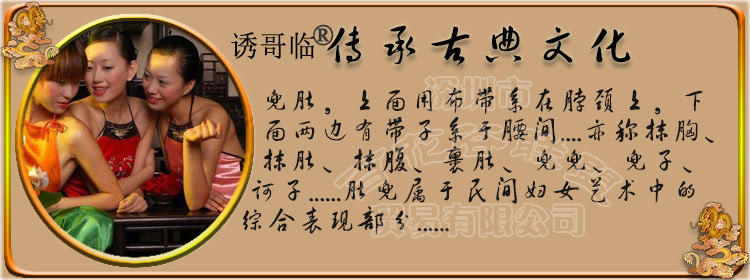 诱哥临® 传承古典文化
兜肚，上面用布带系在脖颈上，下
面两边有带子系于腰间....亦称抹胸、
抹肚、抹腹、裹肚、兜兜、兜子、
诃子......肚兜属于民间妇女艺术中的
综合表现部分......
深圳市
贸易有限公司